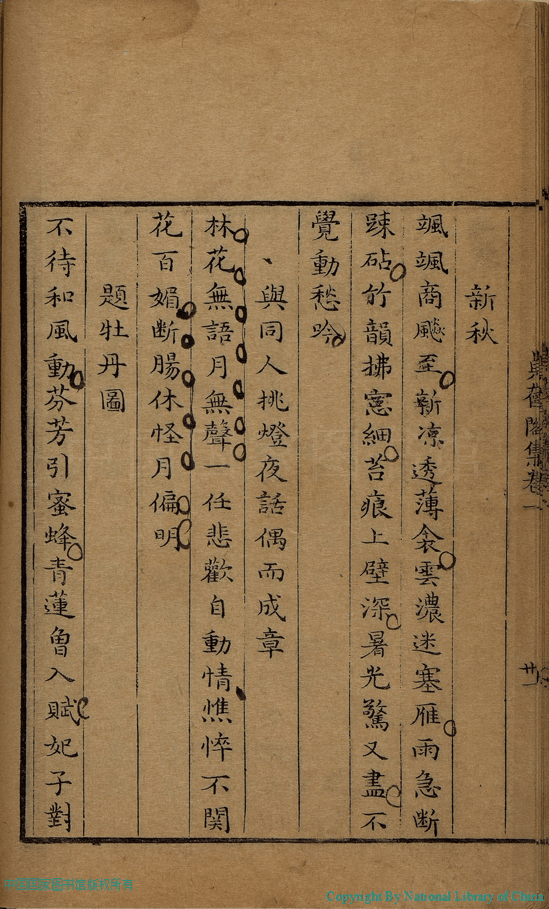 新秋
颯颯商颷至新凉透薄衾雲濃迷塞雁雨急断
踈砧竹韻拂窓細苔痕上壁深暑光驚又盡不
覺動愁吟
、與同人挑燈夜話偶而成章
林花無語月無聲一任悲歡自動情憔悴不関
花百媚断腸休怪月偏明
題牡丹圖
不待和風動芬芳引蜜蜂青蓮曾入賦妃子對
閣集卷一
廿一
Copyright By National Library of China